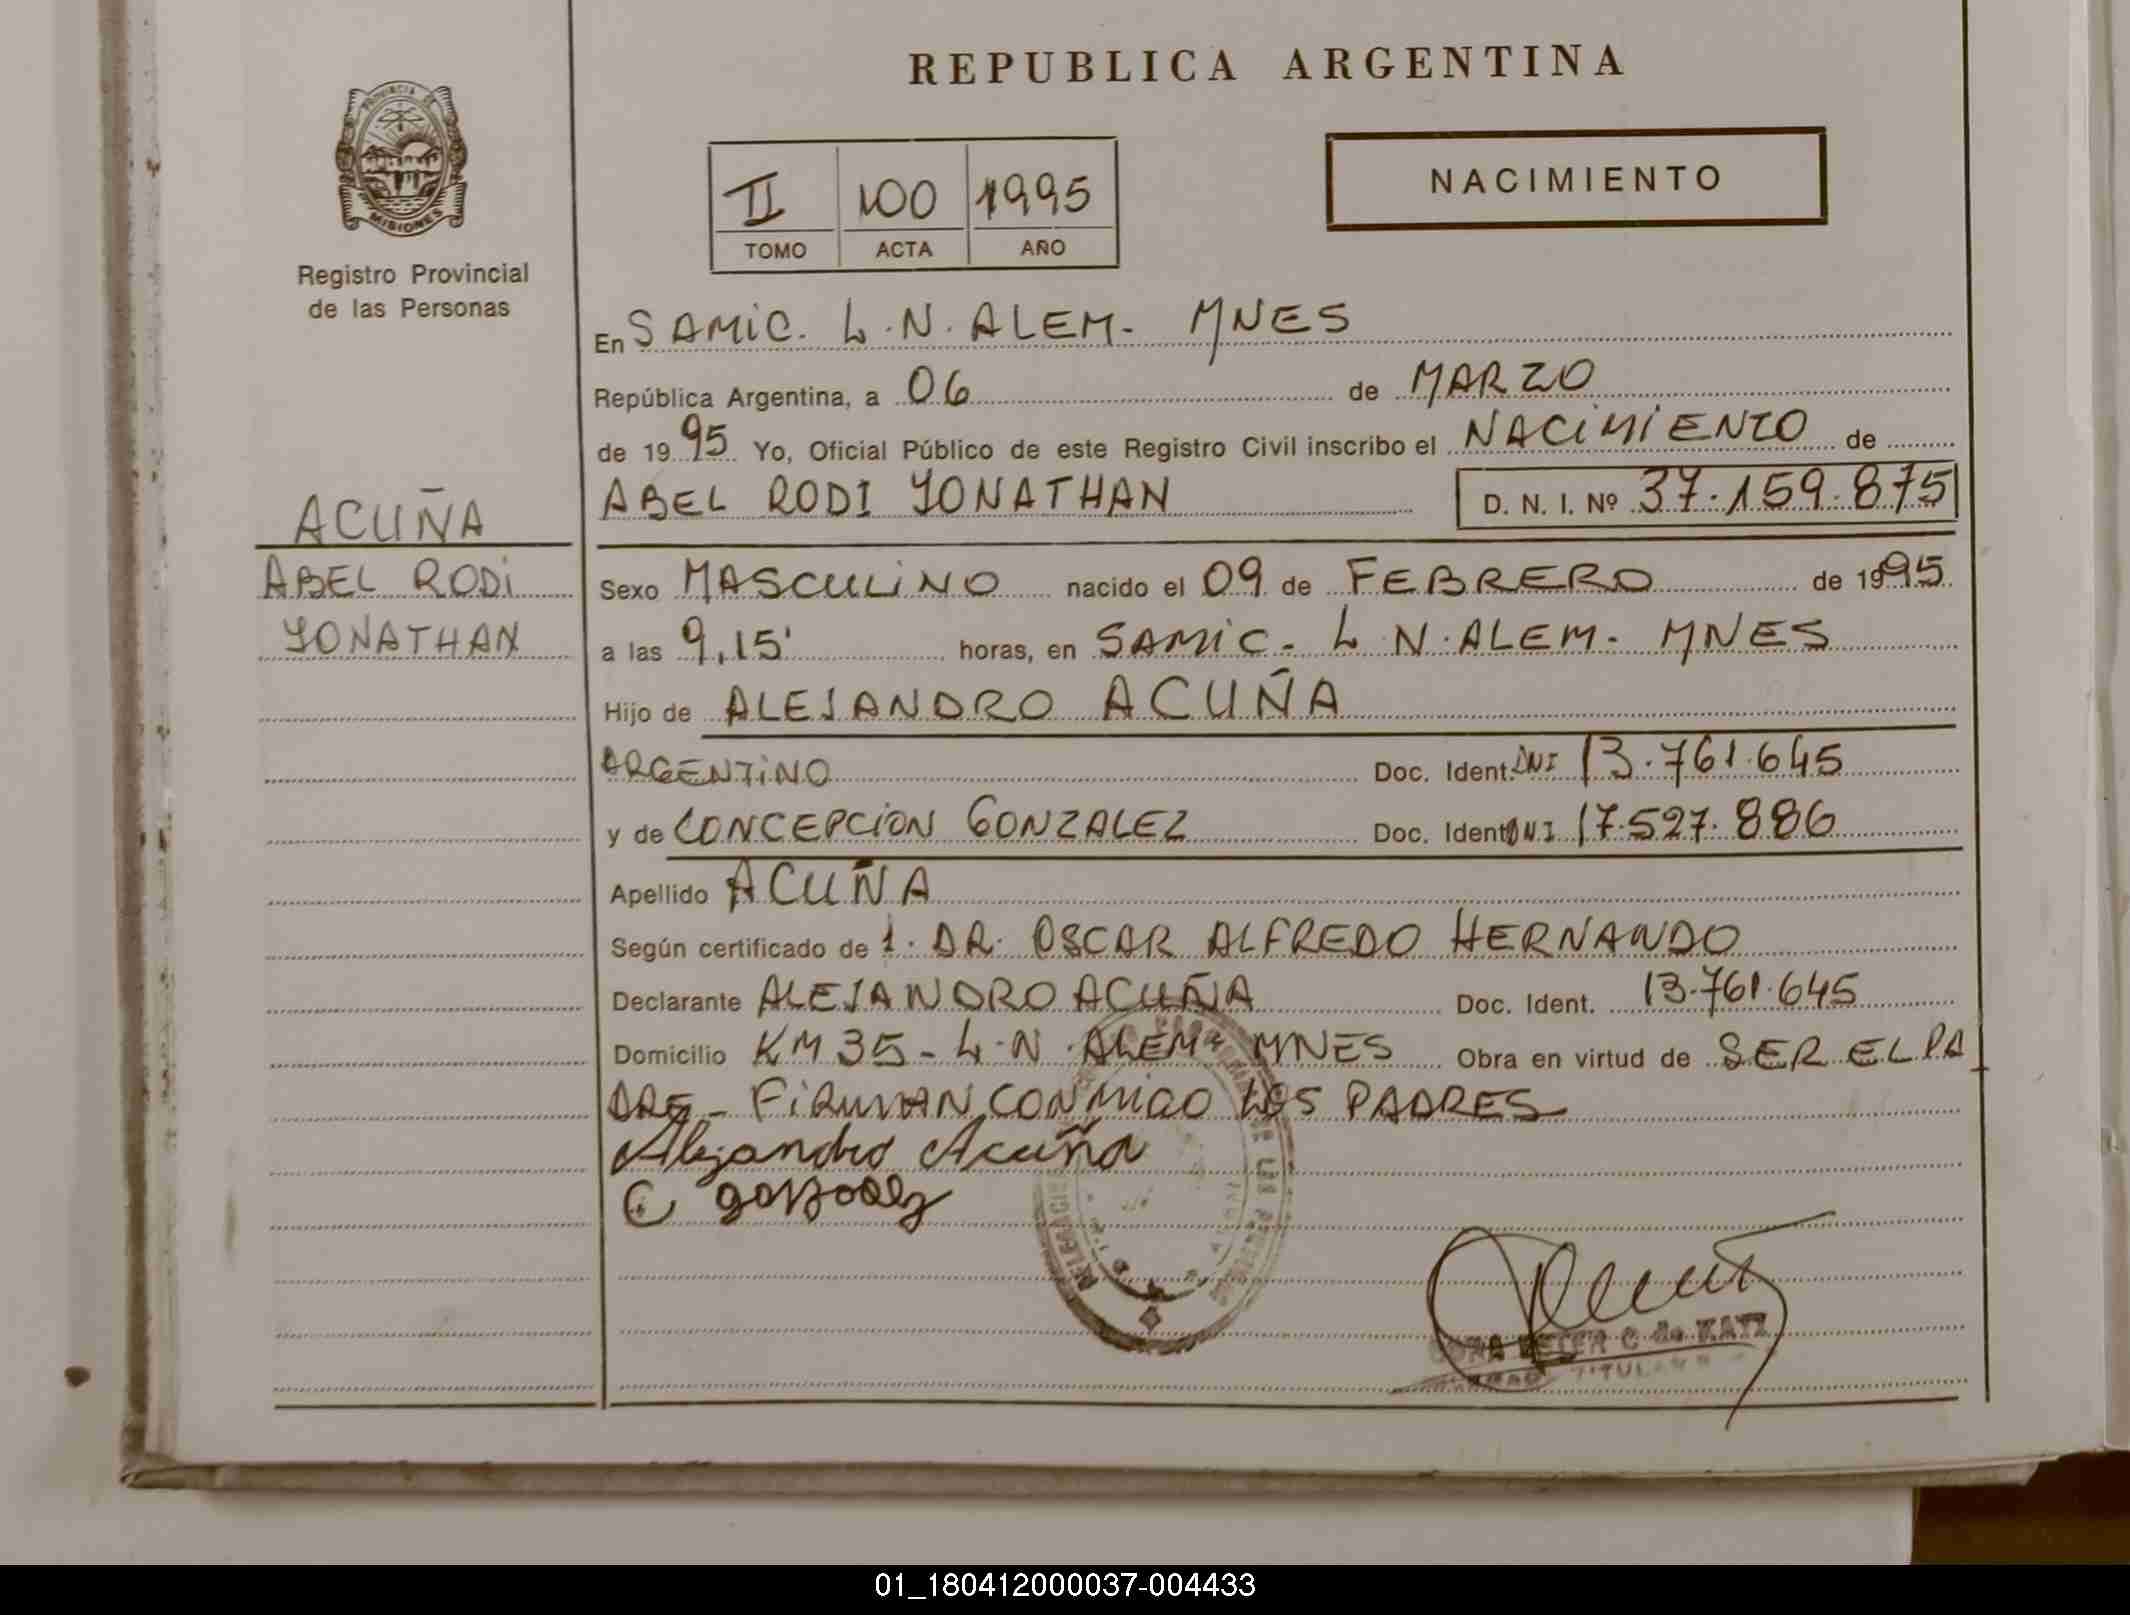 REPUBLICA ARGENTINA
PROVINCIA DE
MISIONES
Registro Provincial
de las Personas
II 100 1995
TOMO ACTA AÑO
NACIMIENTO
En SAMIC. L.N. ALEM- MNES
República Argentina, a 06 de MARZO
de 1995 Yo, Oficial Público de este Registro Civil inscribo el NACIMIENTO de
ABEL RODI YONATHAN D. N. I. Nº 37.159.875
ACUÑA
ABEL RODI
YONATHAN
Sexo MASCULINO nacido el 09 de FEBRERO de 1995
a las 9,15' horas, en SAMIC- L N. ALEM- MNES
Hijo de ALEJANDRO ACUÑA
ARGENTINO Doc. Ident. DNI 13.761.645
y de CONCEPCION GONZALEZ Doc. Ident DNI 17.527.886
Apellido ACUÑA
Según certificado de 1. DR. OSCAR ALFREDO HERNANDO
Declarante ALEJANDRO ACUÑA Doc. Ident. 13.761.645
Domicilio KM 35- L.N. ALEM- MNES Obra en virtud de SER EL PA
DRE- FIRMAN CONMIGO LOS PADRES
Alejandro Acuña
C
C. de KATZ
TITULAR
01_180412000037-004433